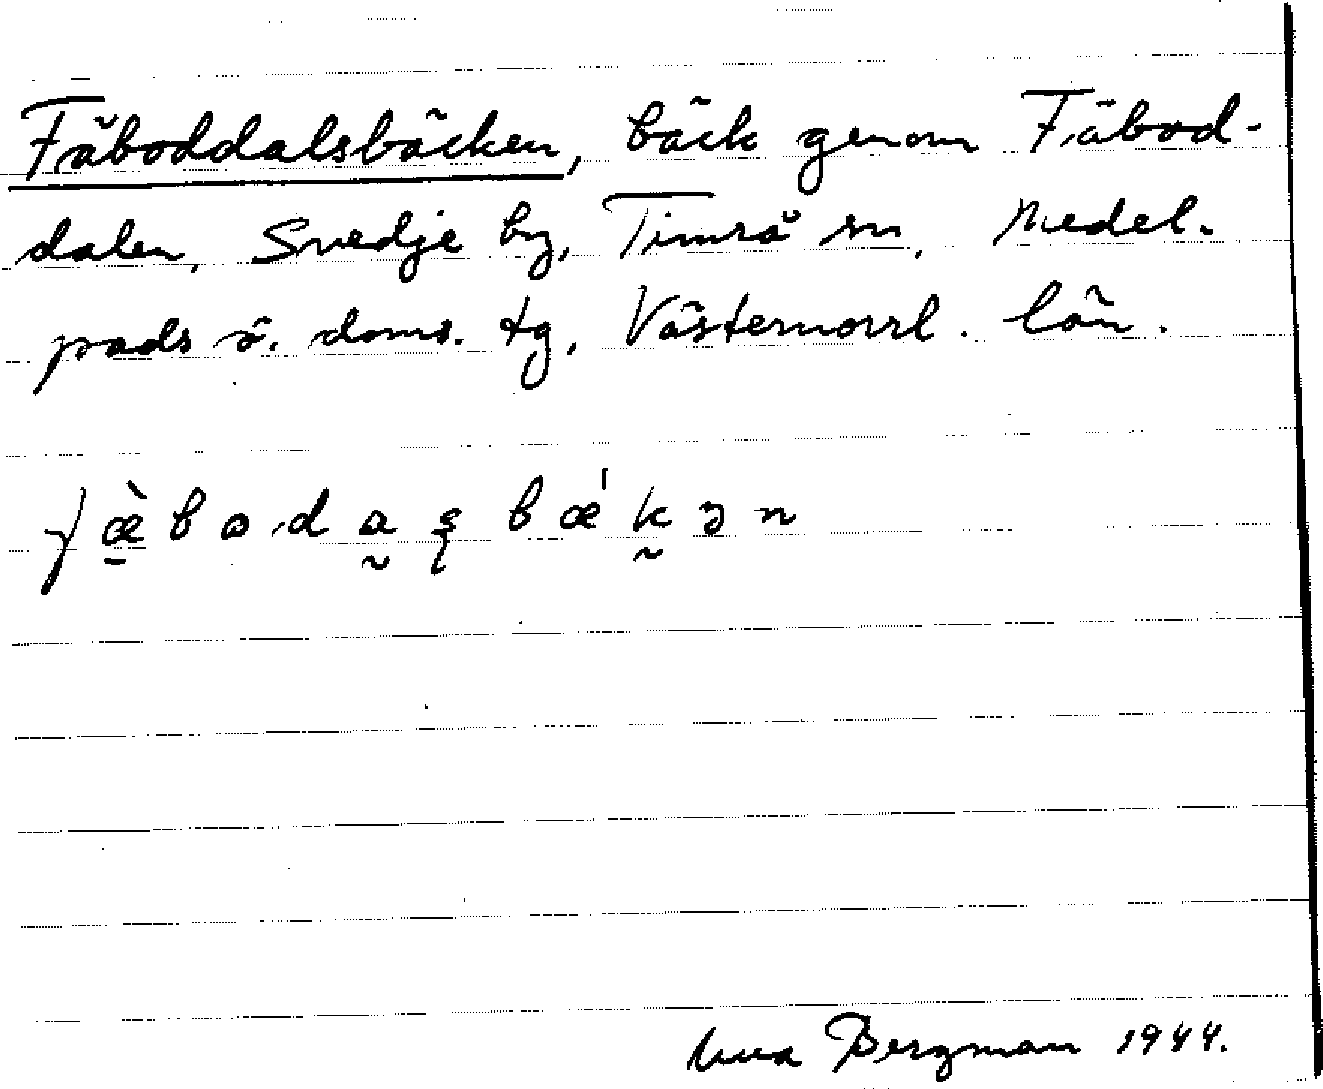 Fäboddalsbäcken, bäck genom Fäbod-
dalen, Svedje by, Timrå sn, Medel-
pads ö. doms. tg, Västernorrl. län.
fæ̀bodasbǽkən
Bergman 1944.